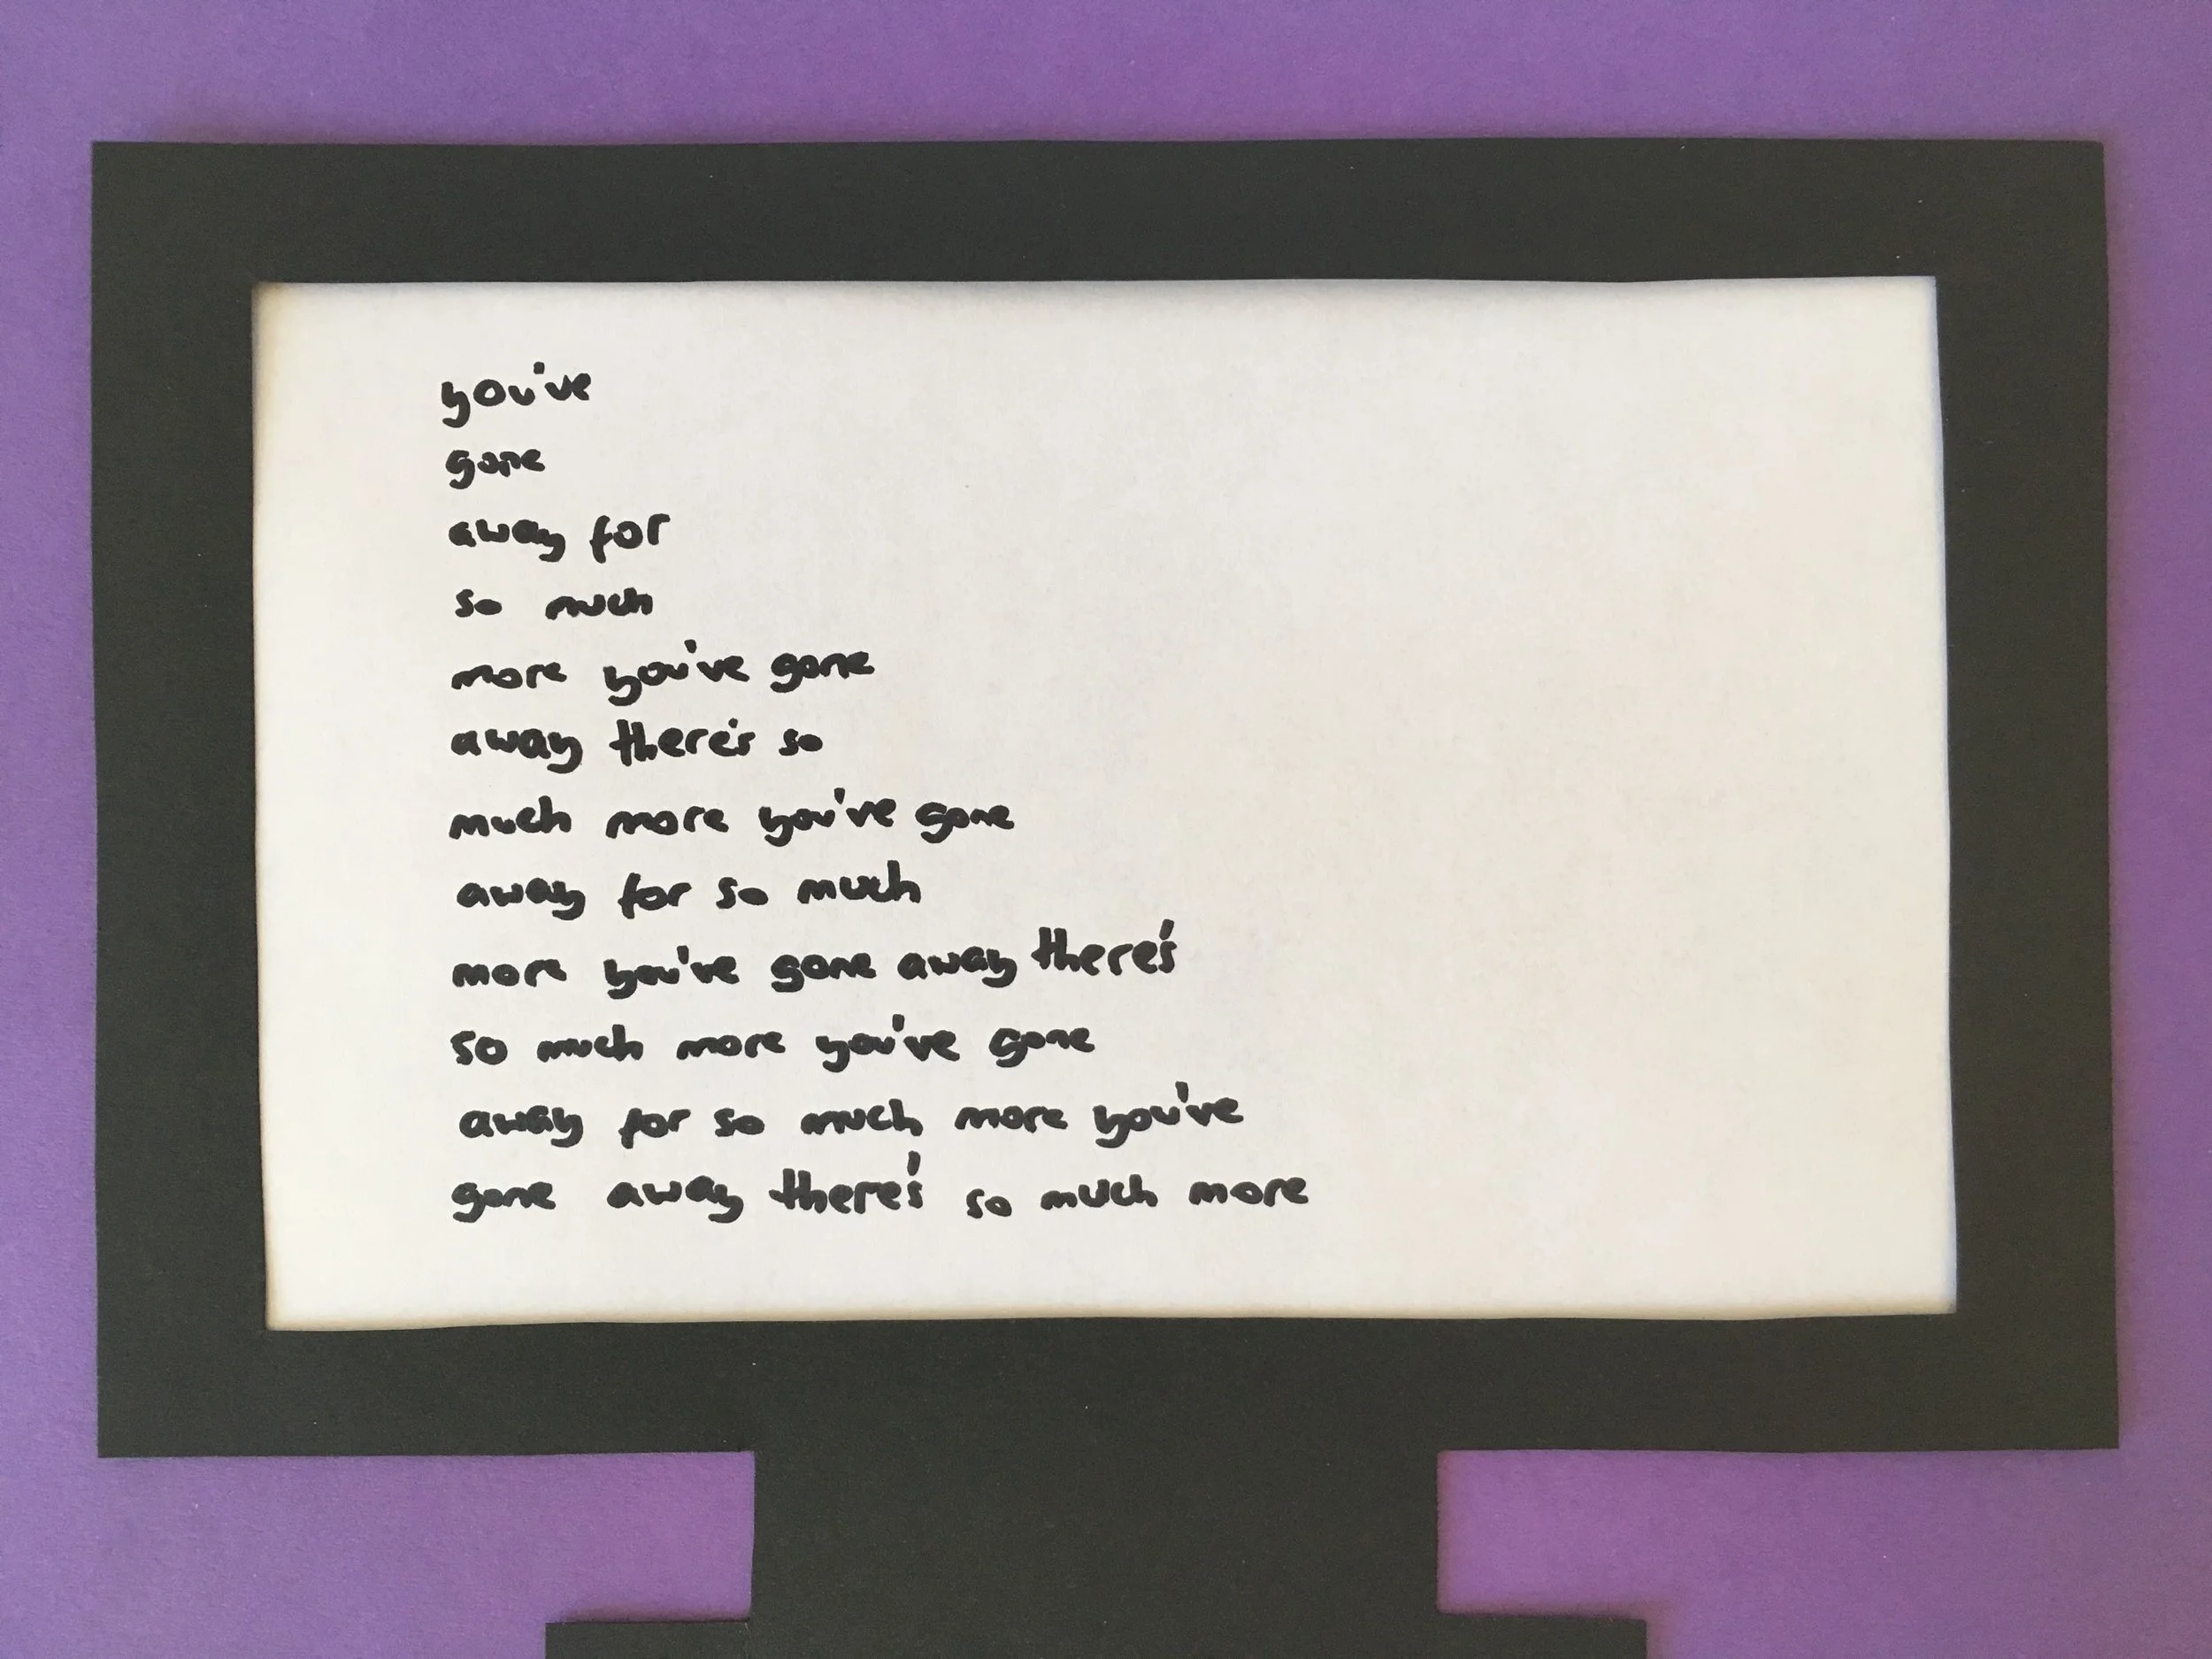 you've
gone
away for
so much
more you've gone
away there's so
much more you've gone
away for so much
more you've gone away there's
so much more you've gone
away for so much more you've
gone away there's so much more